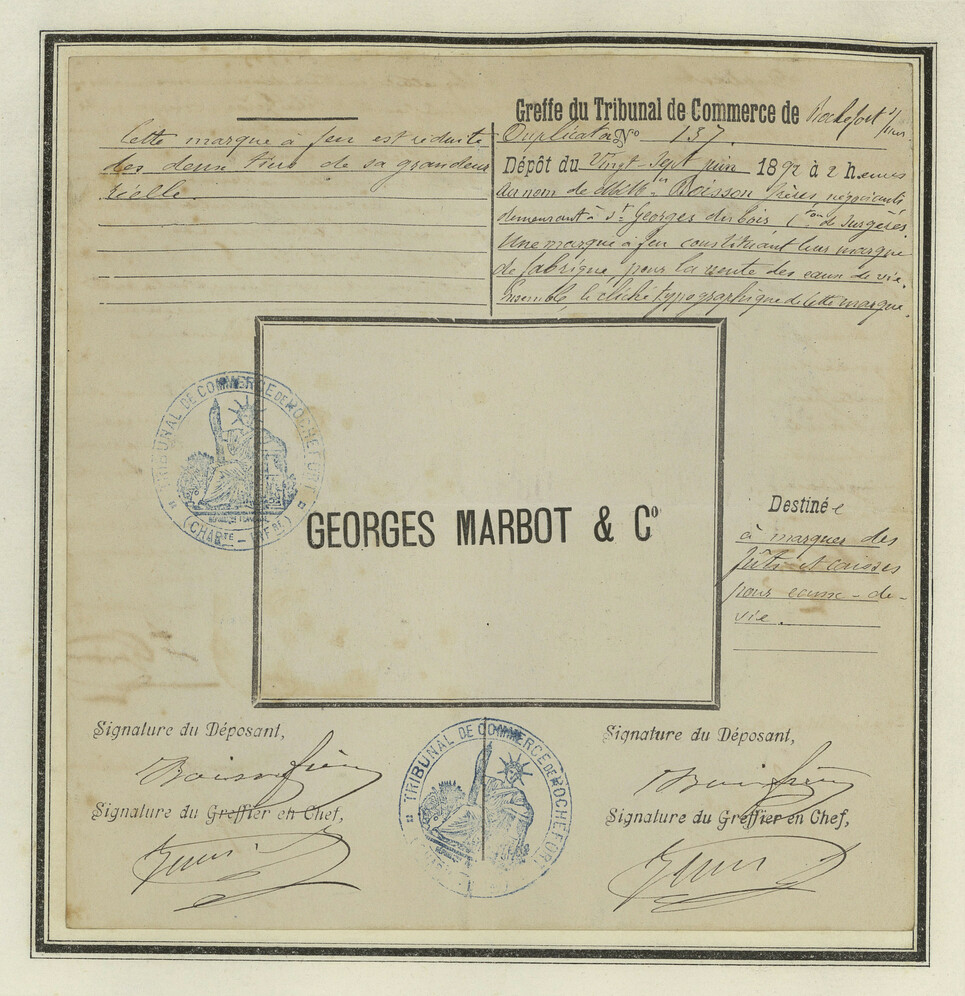 Cette marque à feu est réduite
des deux tiers de sa grandeur
réelle.
Greffe du Tribunal de Commerce de Rochefort s/ mer
Duplicata No 137.
Dépôt du Vingt-Sept juin 1892 à 2 heures
au nom de Boisson frères, négociants
demeurant à St Georges du bois (con de Surgères
Une marque à feu constituant leur marque
de fabrique, pour la vente des eaux de vie.
Ensemble, le cliché typographique de cette marque.
TRIBUNAL DE COMMERCE DE ROCHEFORT
RÉPUBLIQUE FRANÇAISE
(CHARTE - INFRE)
GEORGES MARBOT & Co
Destinée
à marquer des
fûts et caisses
pour eaux-de-
vie.
Signature du Déposant,
Boisson frères
Signature du Greffier en Chef,
TRIBUNAL DE COMMERCE DE ROCHEFORT
Signature du Déposant,
Boisson frères
Signature du Greffier en Chef,